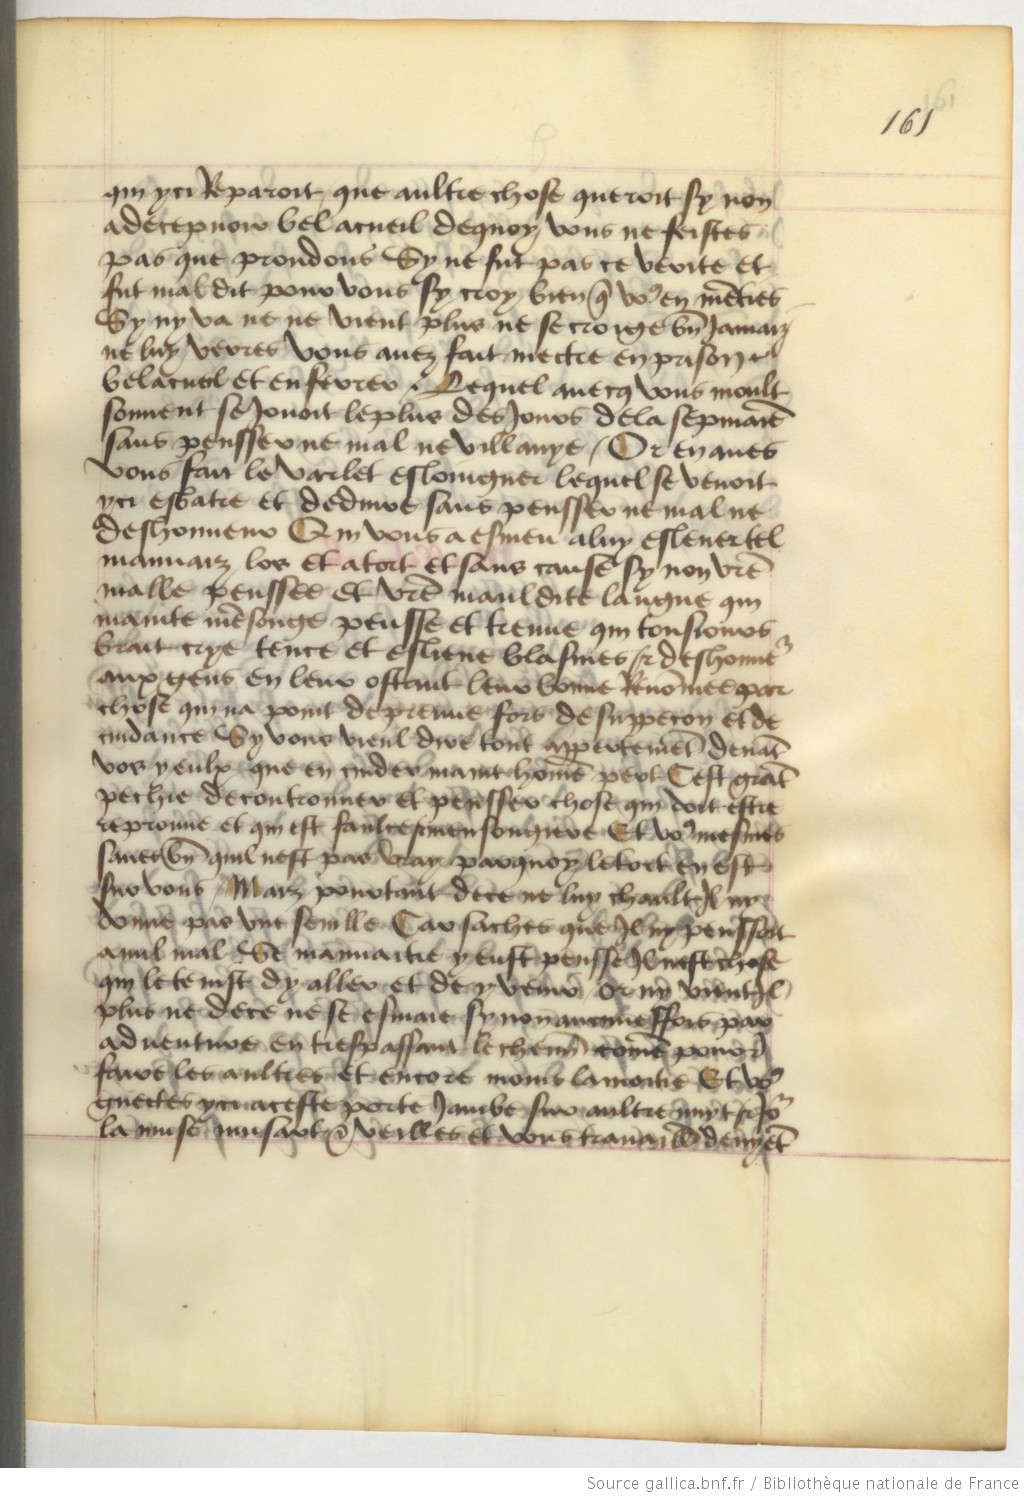 161
qui yci Reparoit que aultre chose queroit sy non
a decepuoir bel acueil de quoy vous ne feistes
pas que preudons Sy ne fut pas ce verite et
fut mal dit pour vous sy croy bien q̃ vo9 en mẽties
Sy ny va ne ne vient plus ne se croi ge bñ Jamaiz
ne luy verres vous auez fait mectre en prison
bel acueil et enferrer Lequel auecq vous moult
souuent se Jouoit le plus des Jours de la sepmaiẽ
sans pensser ne mal ne villanye / Or en aues
vous fait le varlet eslongner lequel se venoit
yci esbatre et deduire sans pensser ne mal ne
deshonneur Qui vous a esmeu a luy esleuer tel
mauuaiz los et a tort et sans cause sy non vrẽ
malle penssee et vrẽ mauldite langue qui
mainte mẽsonge pensse et treuue qui tousiours
brait crye tence et eslieue blasmes deshonne
aux gens en leur ostant leur bonne Renõmee par
chose qui na point de preuue fors de suspecon et de
cuidance Sy vous vieul dire tout appertemẽt deuãt
vos yeulx que en cuider maint hõme pert Cest grãt
pechie de controuuer et pensser chose qui doit estre
reprouue et qui est faulce mensongiere Et vo9 mesmes
saues bñ quil nest pas vray parquoy le tort en est
sur vous Maiz pourtant de ce ne luy chault Il ny
donne pas vne senille Car saches que Il ny penssoit
a nul mal Se mauuaitie y eust pensse Il nest chose
qui le tenist dy aller et de y venir Or ny vient Il
plus ne de ce ne se esmaie sy non aucuneffois par
aduenture en trespassant le chemĩ comẽ pouoir
faire les aultres et encore moins la moitie Et vo9
guectes yci a ceste porte Jambe sur aultre nuyt Jo
la muse musart veilles et vous trauailles